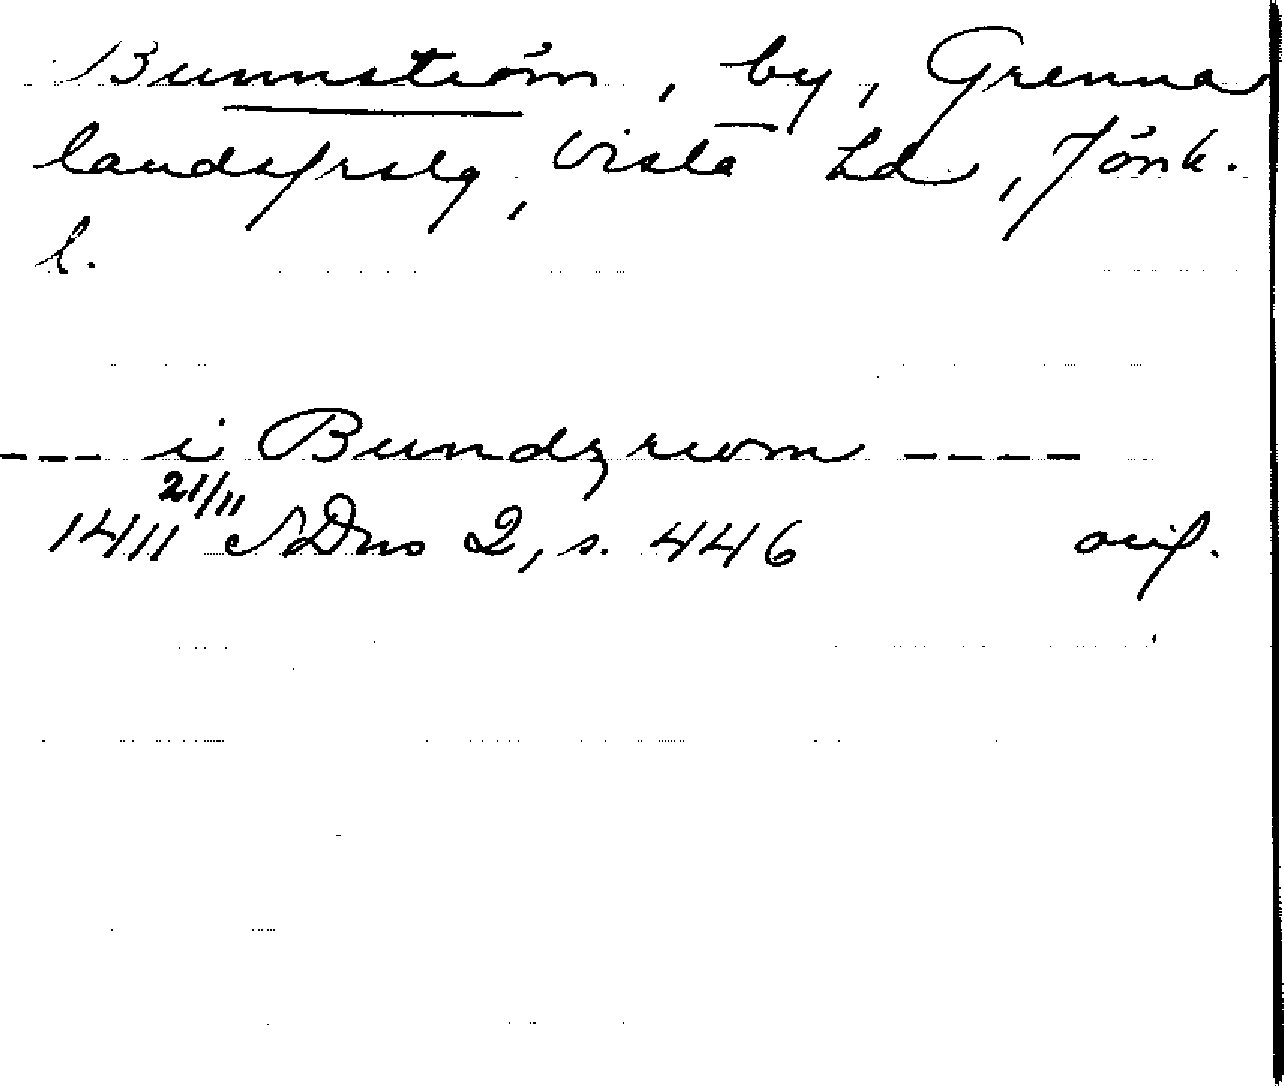 Bunnström, by, Grenna
landsfrslg, Vista hd, Jönk.
l.
--- i Bundzriom ----
1411 21/11 SDns 2, s. 446 orig.